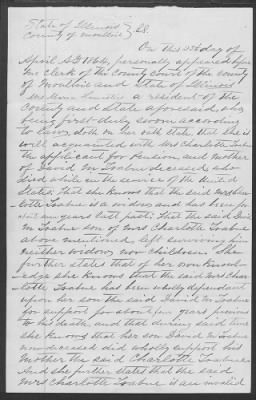 State of Illinois } SS.
County of
On this day of
April A.D. 1864, personally appeared before
me Clerk of the County Court of the county
of and State of Illinois
a resident of the
County and State aforesaid, who
being first duly sworn according
to law, doth on her oath state that she is
well acquainted with Mrs Charlotte
the applicant for Pension, and mother
of David M. deceased, who
died while in the service of the United
States, That she knows that the said Mrs Char-
lotte is a widow and has been for
years last past; that the said David
M. son of Mrs Charlotte
above mentioned left surviving him
neither widow nor children. She
further states that of her own knowl-
edge she knows that the said Mrs Char-
lotte has been wholly dependant
upon her son the said David M.
for support for about few years previous
to his death, and that during said time
she knows that her son David M.
now deceased did wholly support his
Mother the said Charlotte
And she further states that the said
Mrs Charlotte is an invalid